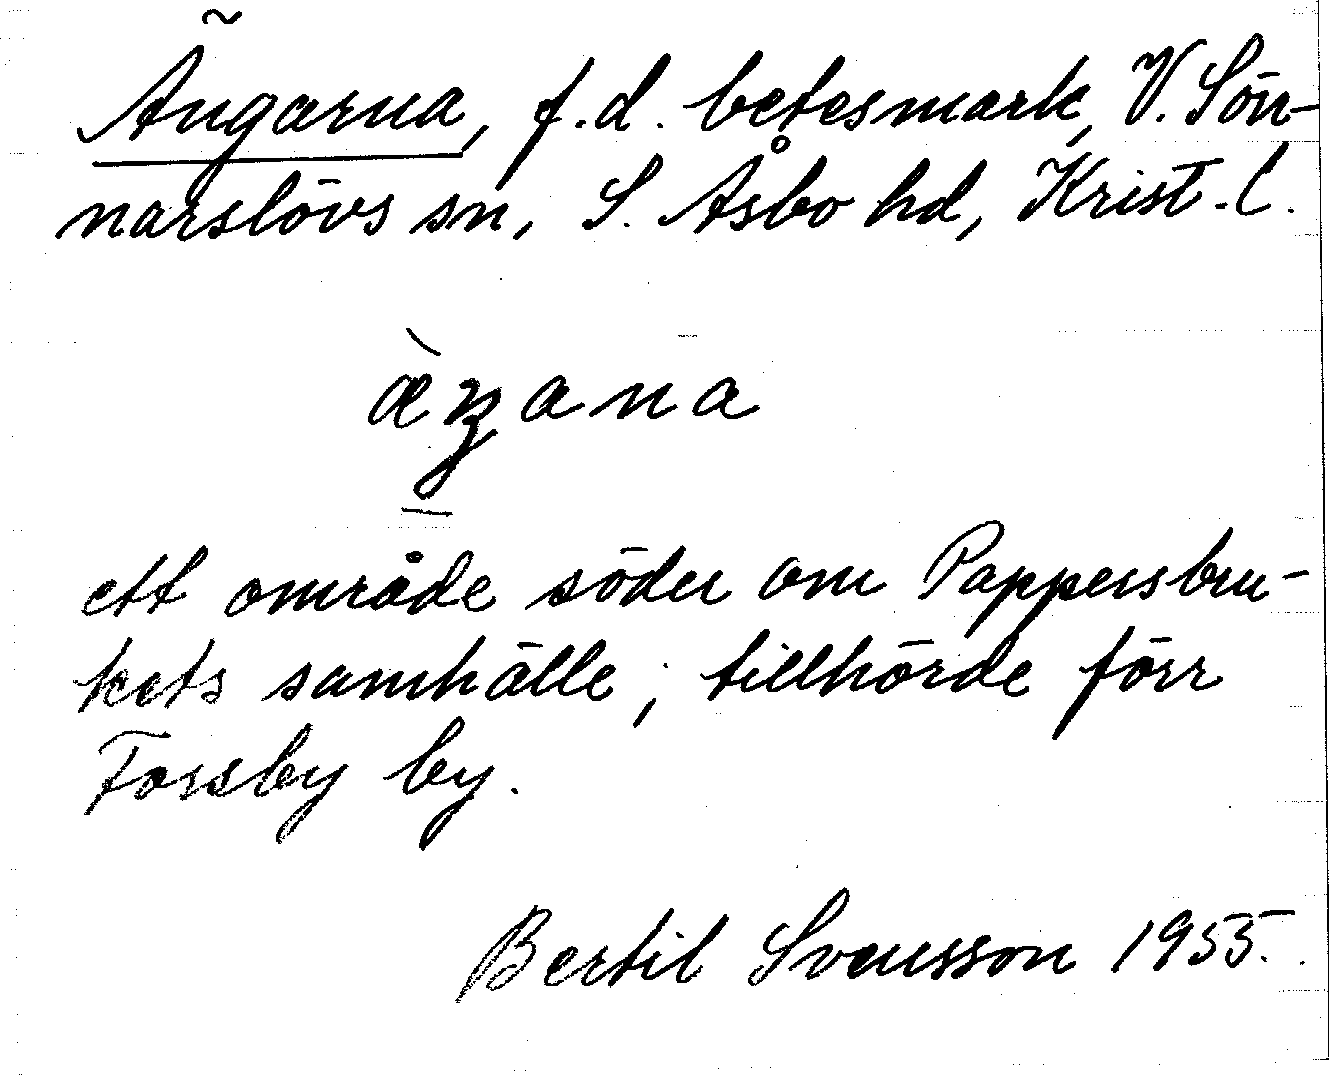 Ängarna, f.d. betesmark, V. Sön-
narslövs sn, S. Åsbo hd, Krist. l.
ett område söder om Pappersbru-
kets samhälle; tillhörde förr
Forsby by.
Bertil Svensson 1955.